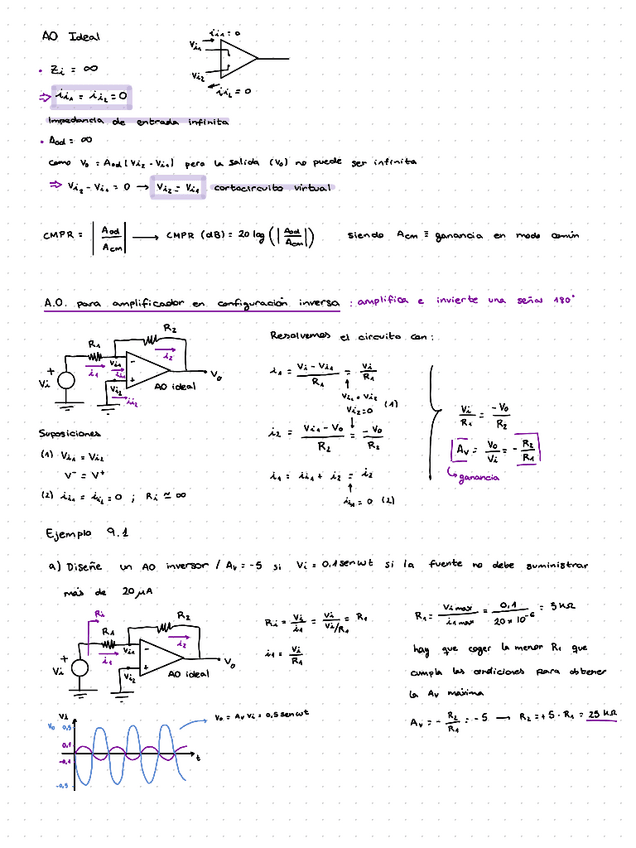 AO Ideal
i_i1 = 0
V_i1
V_i2
i_i2 = 0
• Z_i = ∞
⇒ i_i1 = i_i2 = 0
Impedancia de entrada infinita
• A_od = ∞
como V_o = A_od (V_i2 - V_i1) pero la salida (V_o) no puede ser infinita
⇒ V_i2 - V_i1 = 0 → V_i2 = V_i1 cortocircuito virtual
CMPR = |A_od / A_cm| → CMPR (dB) = 20 log (|A_od / A_cm|) siendo A_cm ≡ ganancia en modo común
A.O. para amplificador en configuración inversa : amplifica e invierte una señal 180°
R_2
R_1
i_2
i_1
V_i1
i_i1
V_i
V_i2
i_i2
AO ideal
V_o
Suposiciones
(1) V_i1 = V_i2
V⁻ = V⁺
(2) i_i1 = i_i2 = 0 ; R_i ≃ ∞
Resolvemos el circuito con:
i_1 = (V_i - V_i1) / R_1 = V_i / R_1
V_i1 = V_i2
V_i2 = 0 (1)
i_2 = (V_i1 - V_o) / R_2 = -V_o / R_2
i_1 = i_i1 + i_2 = i_2
i_i1 = 0 (2)
V_i / R_1 = -V_o / R_2
A_v = V_o / V_i = - R_2 / R_1
ganancia
Ejemplo 9.1
a) Diseñe un AO inversor / A_v = -5 si V_i = 0,1 sen wt si la fuente no debe suministrar
más de 20 μA
R_i
R_2
R_1
i_2
i_1
V_i1
V_i
V_i2
AO ideal
V_o
R_i = V_i / i_1 = V_i / (V_i/R_1) = R_1
i_1 = V_i / R_1
R_1 = V_i max / i_1 max = 0,1 / (20×10⁻⁶) = 5 kΩ
hay que coger la menor R_1 que
cumpla las condiciones para obtener
la A_v máxima
A_v = - R_2 / R_1 = -5 → R_2 = +5 · R_1 = 25 kΩ
V_i
V_o
0,5
0,1
-0,1
-0,5
t
V_o = A_v V_i = 0,5 sen wt